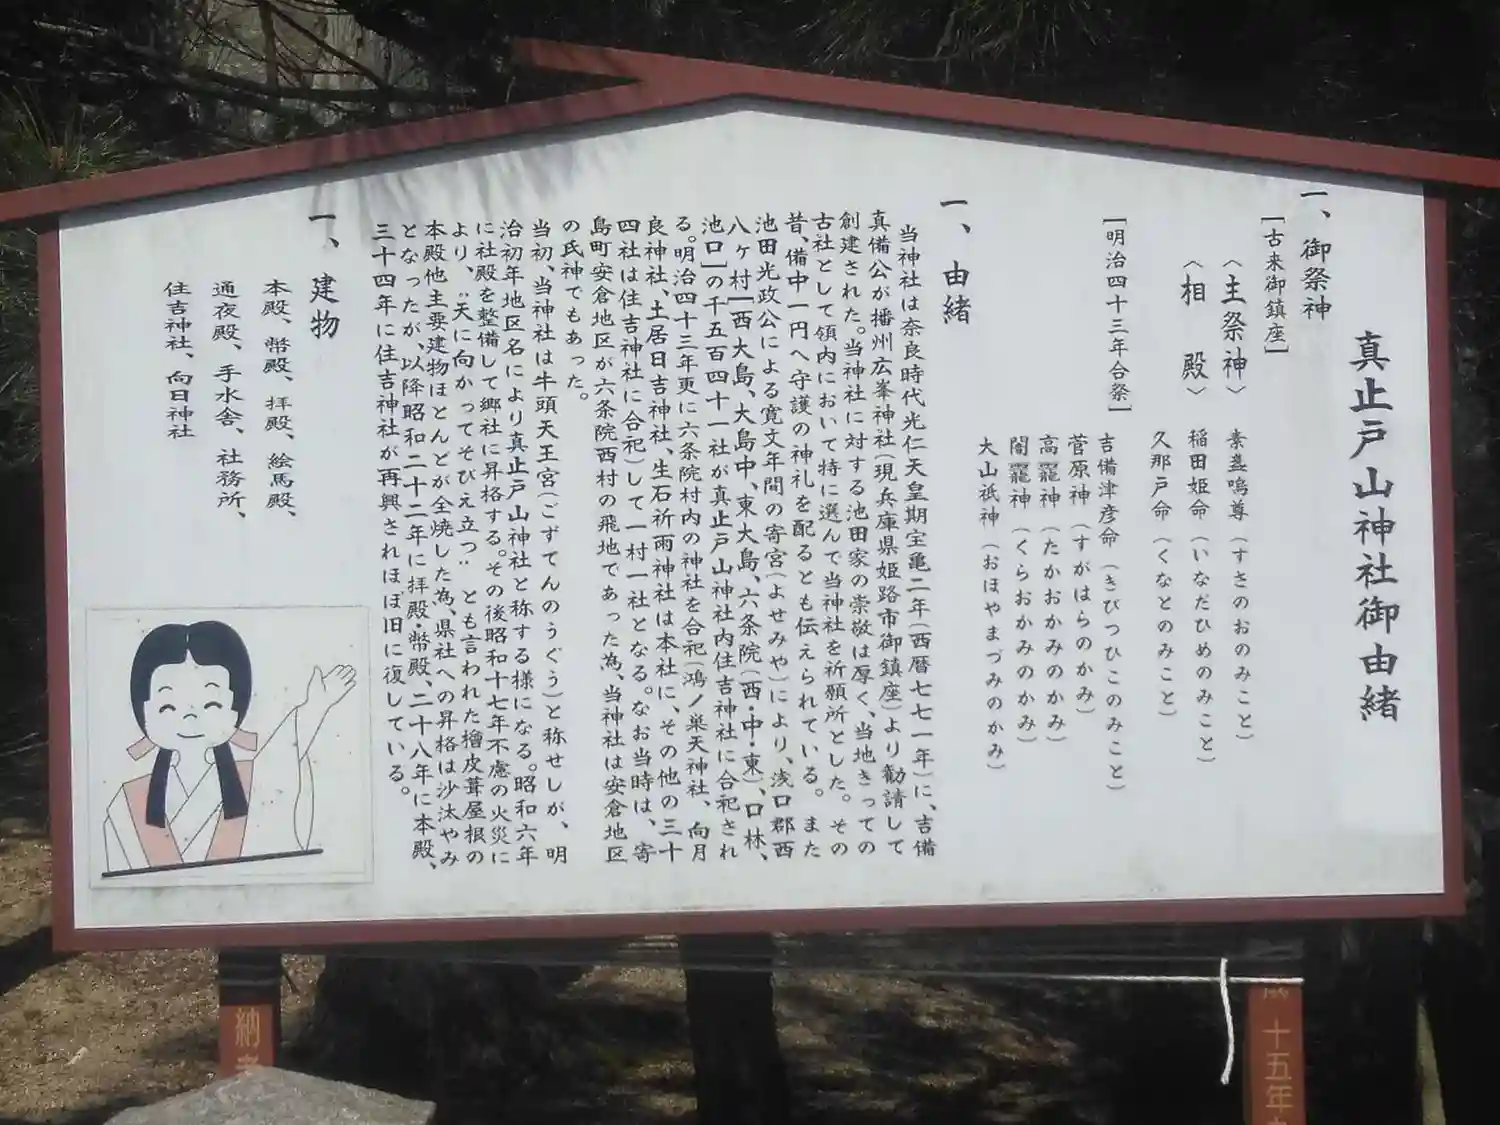 真止戸山神社御由緒
一、御祭神
[古来御鎮座]
〈主祭神〉 素盞嗚尊(すさのおのみこと)
〈相 殿〉 稲田姫命(いなだひめのみこと)
久那戸命(くなとのみこと)
[明治四十三年合祭] 吉備津彦命(きびつひこのみこと)
菅原神(すがはらのかみ)
高龗神(たかおかみのかみ)
闇龗神(くらおかみのかみ)
大山祇神(おほやまづみのかみ)
一、由緒
当神社は奈良時代光仁天皇期宝亀二年(西暦七七一年)に、吉備
真備公が播州広峯神社(現兵庫県姫路市御鎮座)より勧請して
創建された。当神社に対する池田家の崇敬は厚く、当地きっての
古社として領内において特に選んで当神社を祈願所とした。その
昔、備中一円へ守護の神礼を配るとも伝えられている。また
池田光政公による寛文年間の寄宮(よせみや)により、浅口郡西
八ヶ村[西大島、大島中、東大島、六条院(西・中・東)、口林、
池口]の千五百四十一社が真止戸山神社内住吉神社に合祀され
る。明治四十三年更に六条院村内の神社を合祀(鴻ノ巣天神社、向月
良神社、土居日吉神社、生石祈雨神社は本社に、その他の三十
四社は住吉神社に合祀)して一村一社となる。なお当時は、寄
島町安倉地区が六条院西村の飛地であった為、当神社は安倉地区
の氏神でもあった。
当初、当神社は牛頭天王宮(ごずてんのうぐう)と称せしが、明
治初年地区名により真止戸山神社と称する様になる。昭和六年
に社殿を整備して郷社に昇格する。その後昭和十七年不慮の火災に
より、〝天に向かってそびえ立つ〟とも言われた檜皮葺屋根の
本殿他主要建物ほとんどが全焼した為、県社への昇格は沙汰やみ
となったが、以降昭和二十二年に拝殿・幣殿、二十八年に本殿、
三十四年に住吉神社が再興されほぼ旧に復している。
一、建物
本殿、幣殿、拝殿、絵馬殿、
通夜殿、手水舎、社務所、
住吉神社、向日神社
十五年
納